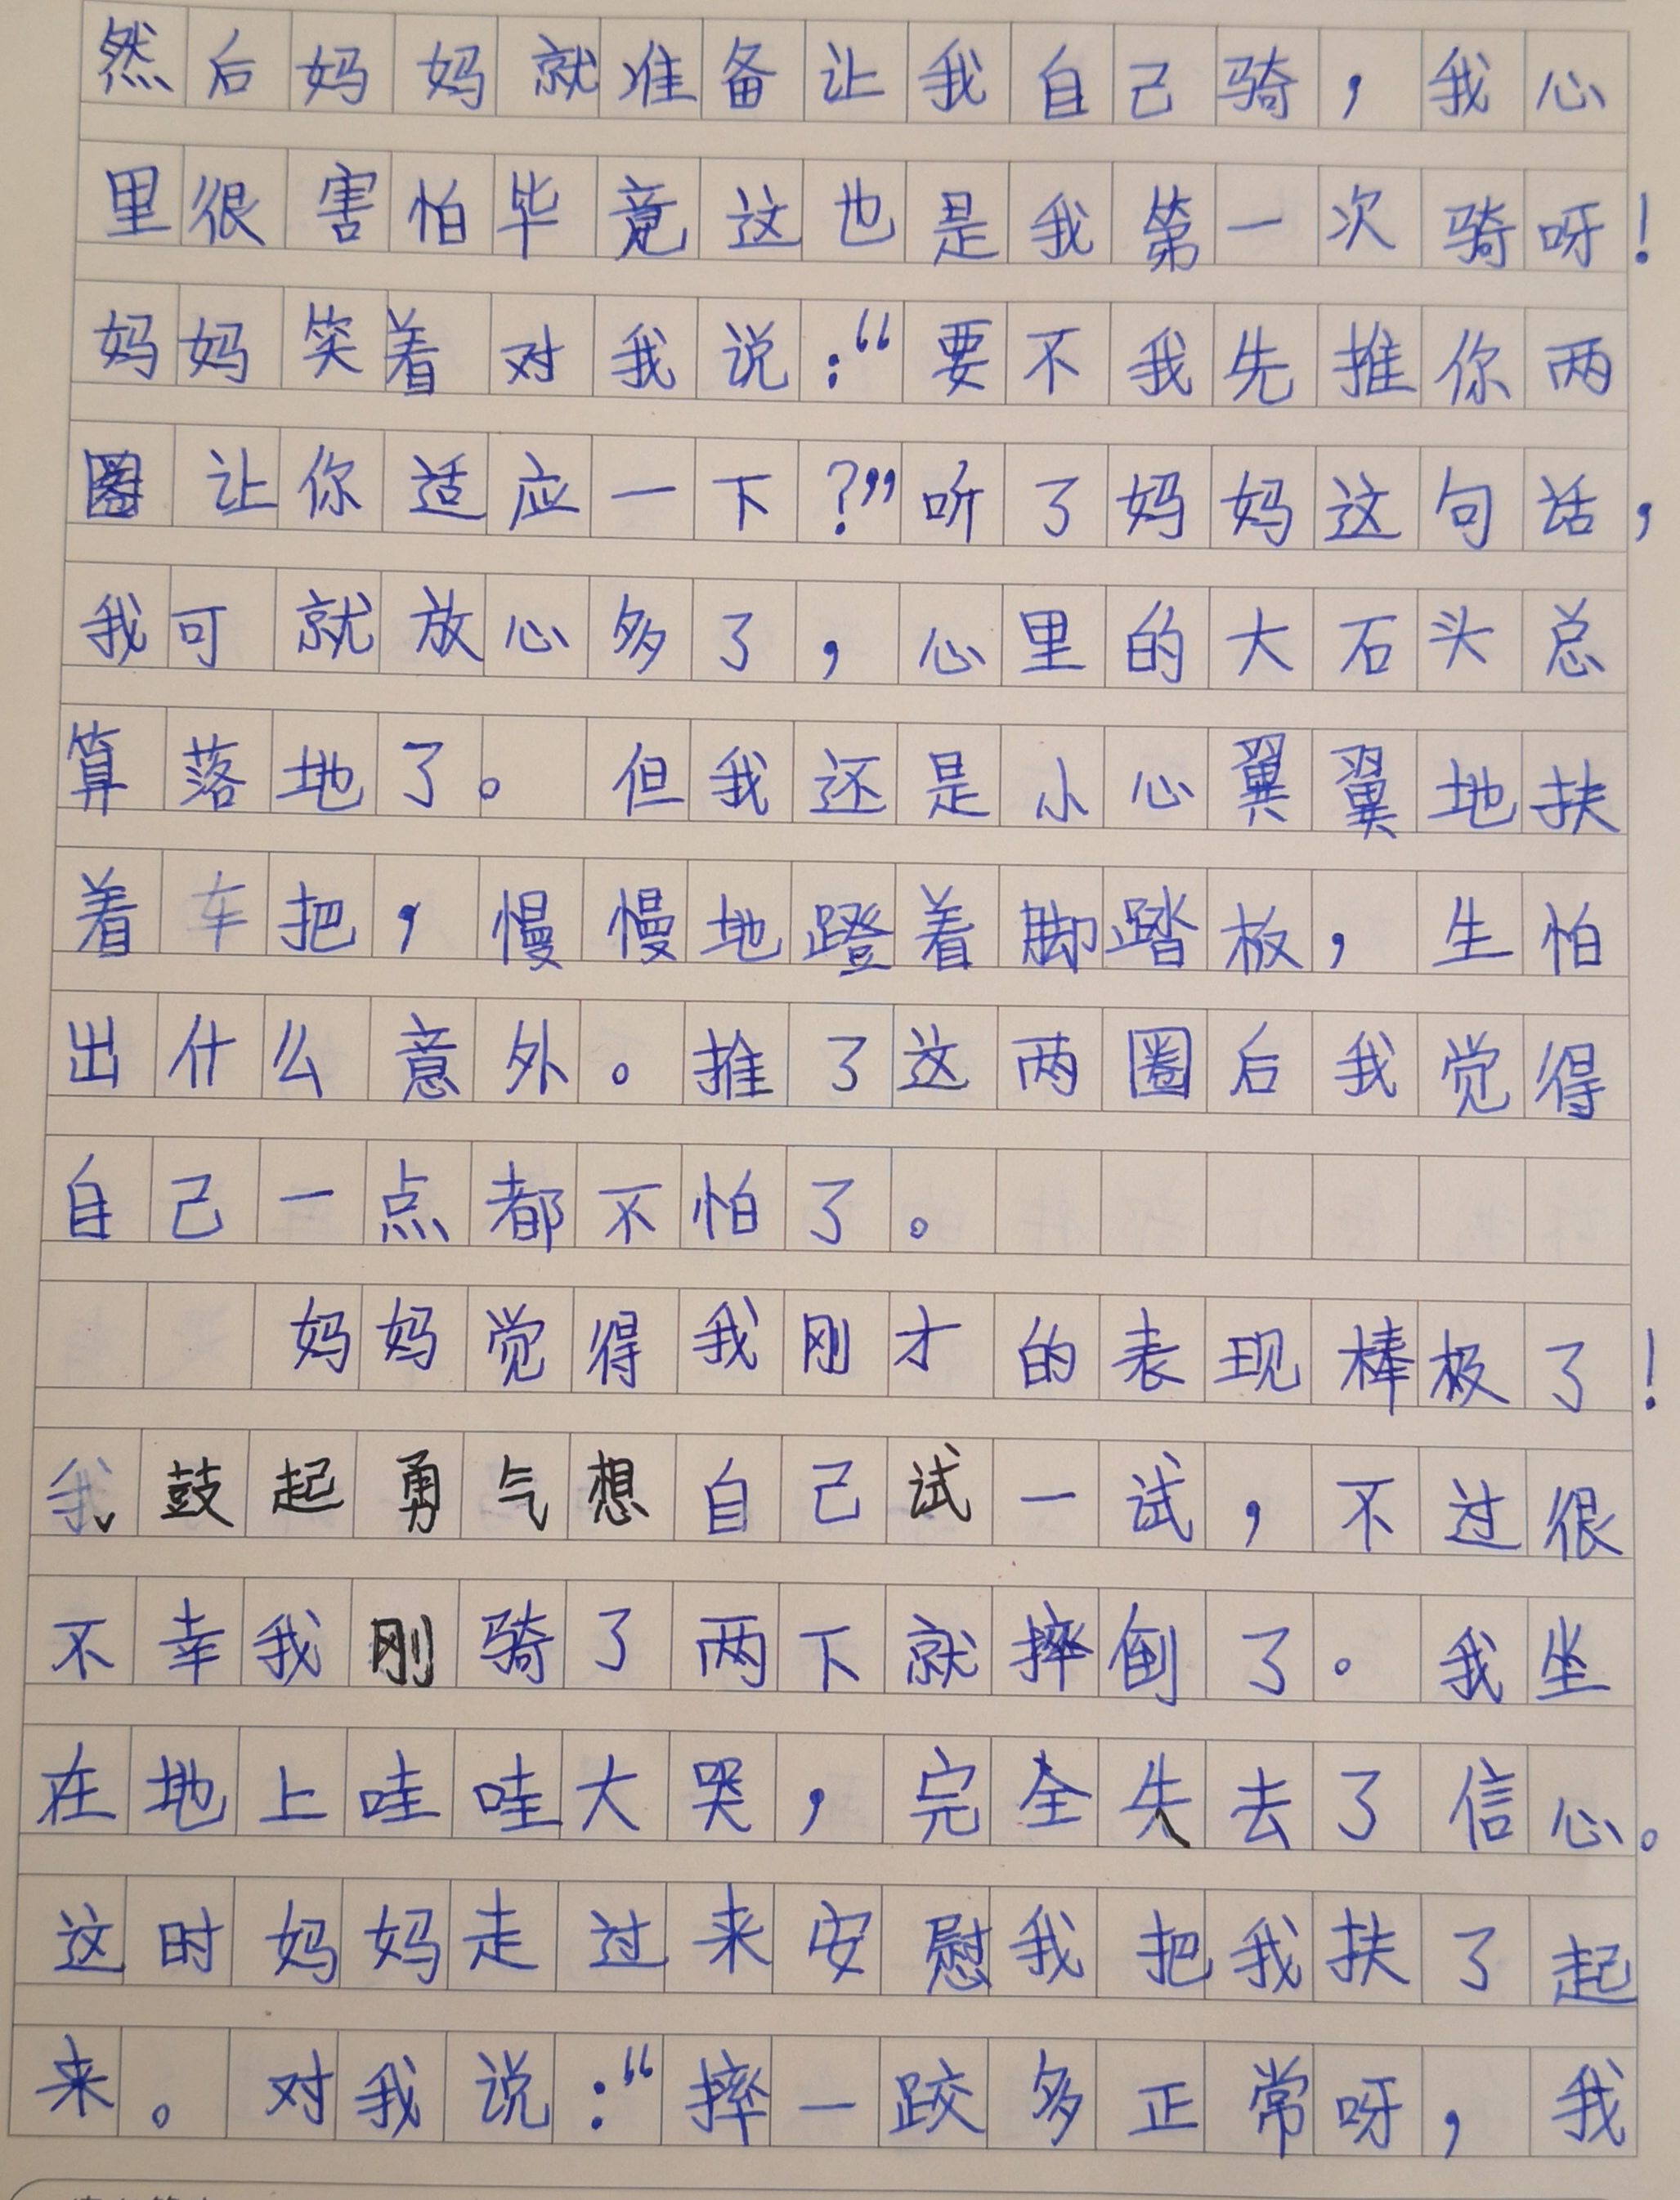 然后妈妈就准备让我自己骑，我心
里很害怕毕竟这也是我第一次骑呀！
妈妈笑着对我说：“要不我先推你两
圈让你适应一下？”听了妈妈这句话，
我可就放心多了，心里的大石头总
算落地了。但我还是小心翼翼地扶
着车把，慢慢地蹬着脚踏板，生怕
出什么意外。推了这两圈后我觉得
自己一点都不怕了。
妈妈觉得我刚才的表现棒极了！
我鼓起勇气想自己试一试，不过很
不幸我刚骑了两下就摔倒了。我坐
在地上哇哇大哭，完全失去了信心。
这时妈妈走过来安慰我把我扶了起
来。对我说：“摔一跤多正常呀，我